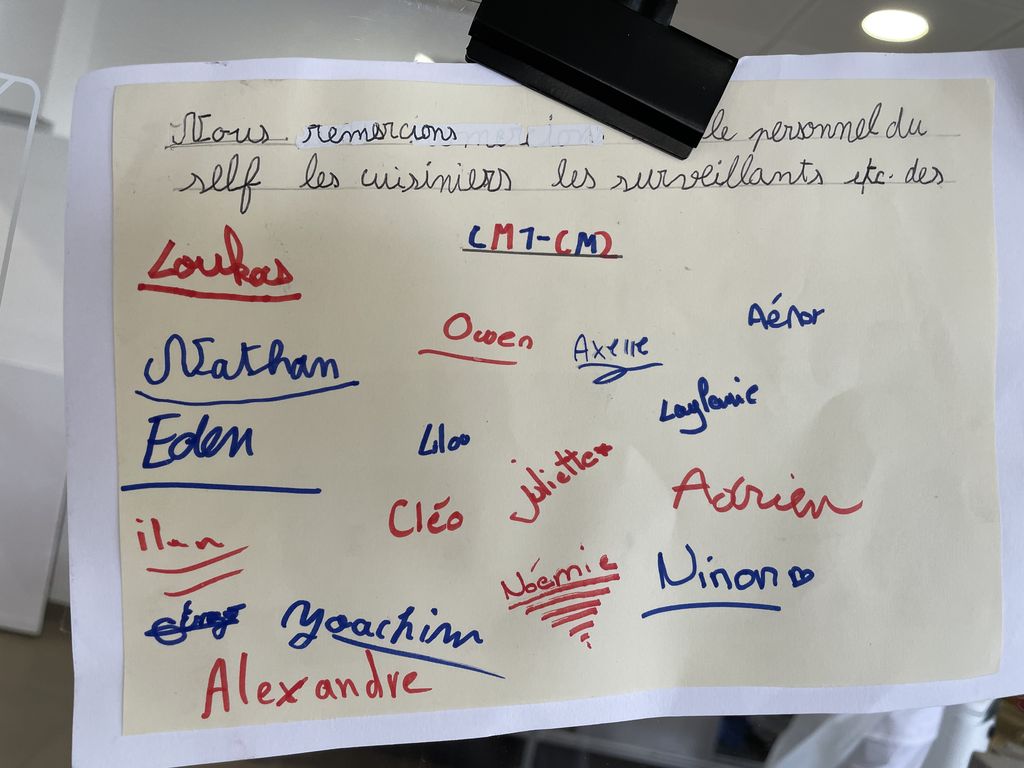 Nous remercions le personnel du
self les cuisiniers les surveillants etc. des
CM1-CM2
Loukas
Aénor
Owen
Axelle
Nathan
Eden
Liloo
Juliette
Adrien
Cléo
ilan
Noémie
Ninon
Yoachim
Alexandre